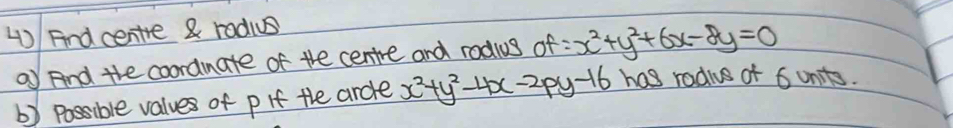 4) Find centre & radius
a) Find the coordinate of the centre and radius of : x²+y²+6x-8y=0
b) Possible values of p if the circle x²+y²-4x-2py-16 has radius of 6 units.